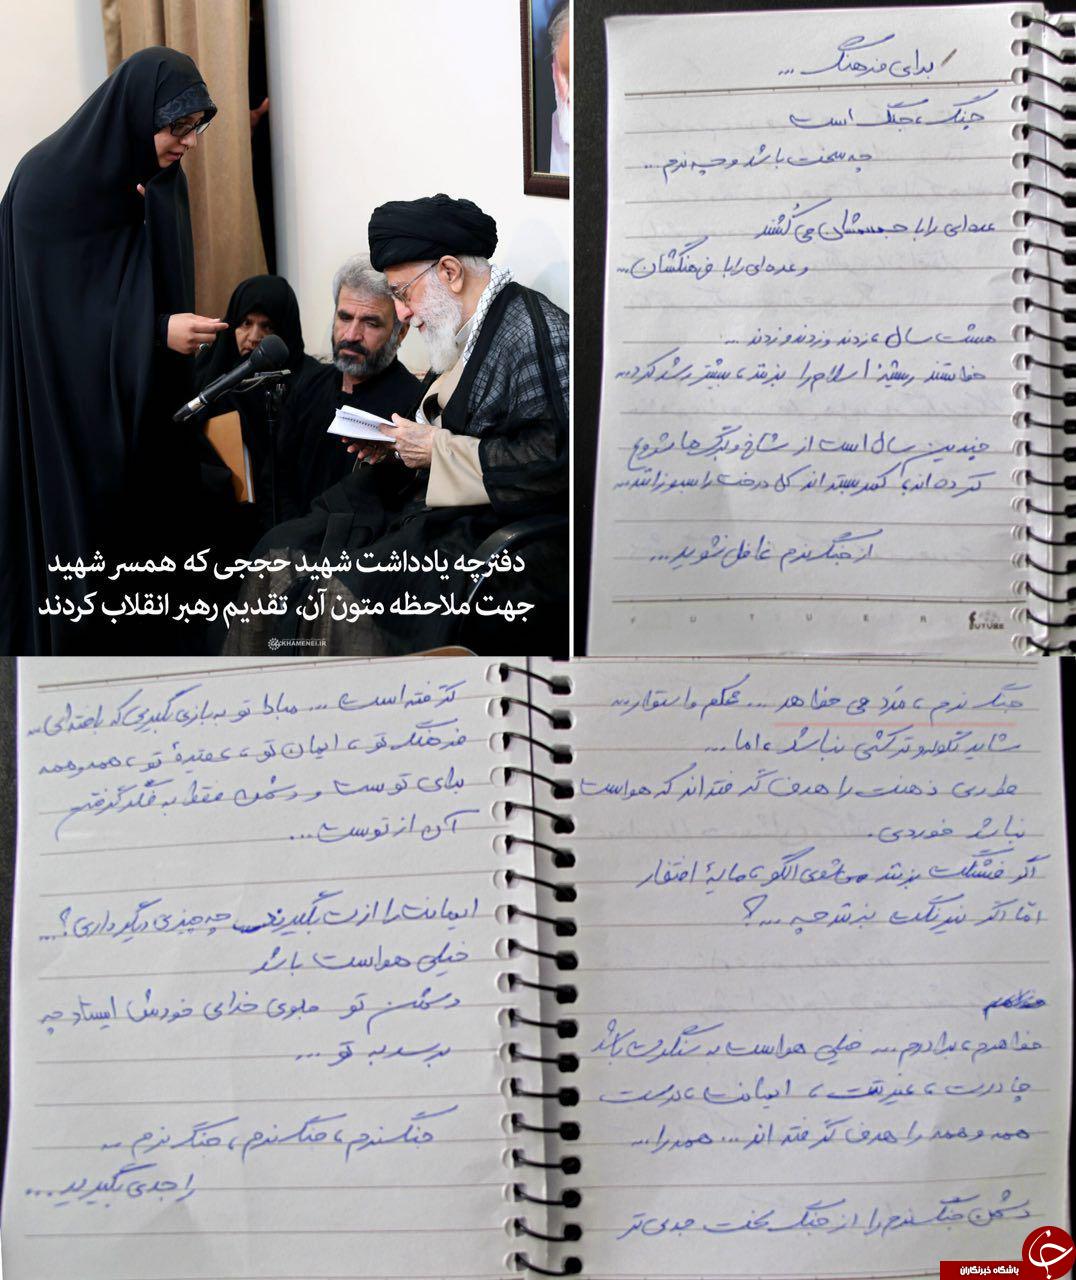 دفترچه یادداشت شهید حججی که همسر شهید
جهت ملاحظه متون آن، تقدیم رهبر انقلاب کردند
KHAMENEI.IR
برای فرهنگ ...
جنگ، جنگ است
چه سخت باشد و چه نرم ...
عده‌ای را با جسمشان می‌کُشند
و عده‌ای را با فرهنگشان ...
هشت سال، زدند و زدند و زدند ...
خواستند ریشهٔ اسلام را بزنند، بیشتر رشد کرد ...
چندین سال است از شاخ و برگ‌ها شروع
کرده‌اند، کمر بسته‌اند کل درخت را بسوزانند ...
از جنگ نرم غافل نشوید ...
FUTURE
FUTURE
جنگ نرم، مَرد می خواهد ... محکم و استوار ...
شاید گلوله و ترکشی نباشد، اما ...
طوری ذهنت را هدف گرفته‌اند که هواست
نباشد خوردی .
اگر فشنگت بزنند می‌شوی الگو، مایهٔ افتخار
امّا اگر نیرنگت بزنند چه ...؟
خواهرم، برادرم ... خیلی هواست به سنگرت باشد
چادرت، غیرتت، ایمانت، درست
همه و همه را هدف گرفته اند ... همه را ...
دشمن جنگ نرم را از جنگ سخت جدی تر
گرفته است ... مبادا تو به بازی بگیری که باخته‌ای ...
فرهنگ تو، ایمان تو، عقیدهٔ تو، همه و همه
برای توست و دشمن فقط به فکر گرفتن
آن از توست ...
ایمانت را ازت بگیرند چه چیزی دیگر داری؟ ...
خیلی هواست باشد
دشمن تو جلوی خدای خودش ایستاد چه
برسد به تو ...
جنگ نرم، جنگ نرم، جنگ نرم ...
را جدی بگیرید ...
باشگاه خبرنگاران